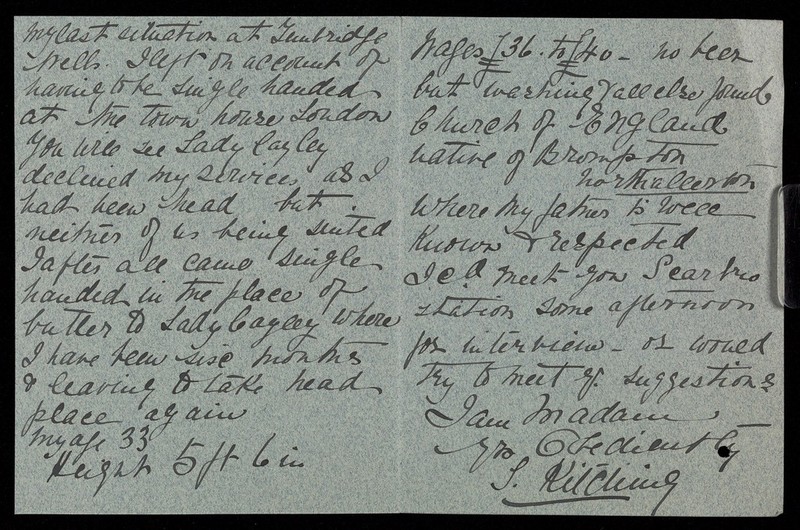 my last situation at Tunbridge
Wells. I left on account of
having to be single handed
at the town house London
You will see Lady Cayley
declined my services as I
had been head but.
neither of us being suited
I after all came single
handed in the place of
butler to Lady Cayley where
I have been six months
& leaving to take head
place again
My age 33
Height 5 ft 6 in
Wages £36. to £40 - no beer
but washing & all else found
Church of England
native of Brompton
Northallerton
Where my father is well
known & respected
I cd meet you Scarbro
station some afternoon
for interview - or would
try to meet yr. suggestions
I am Madam
yrs Obediently
S. Kitching